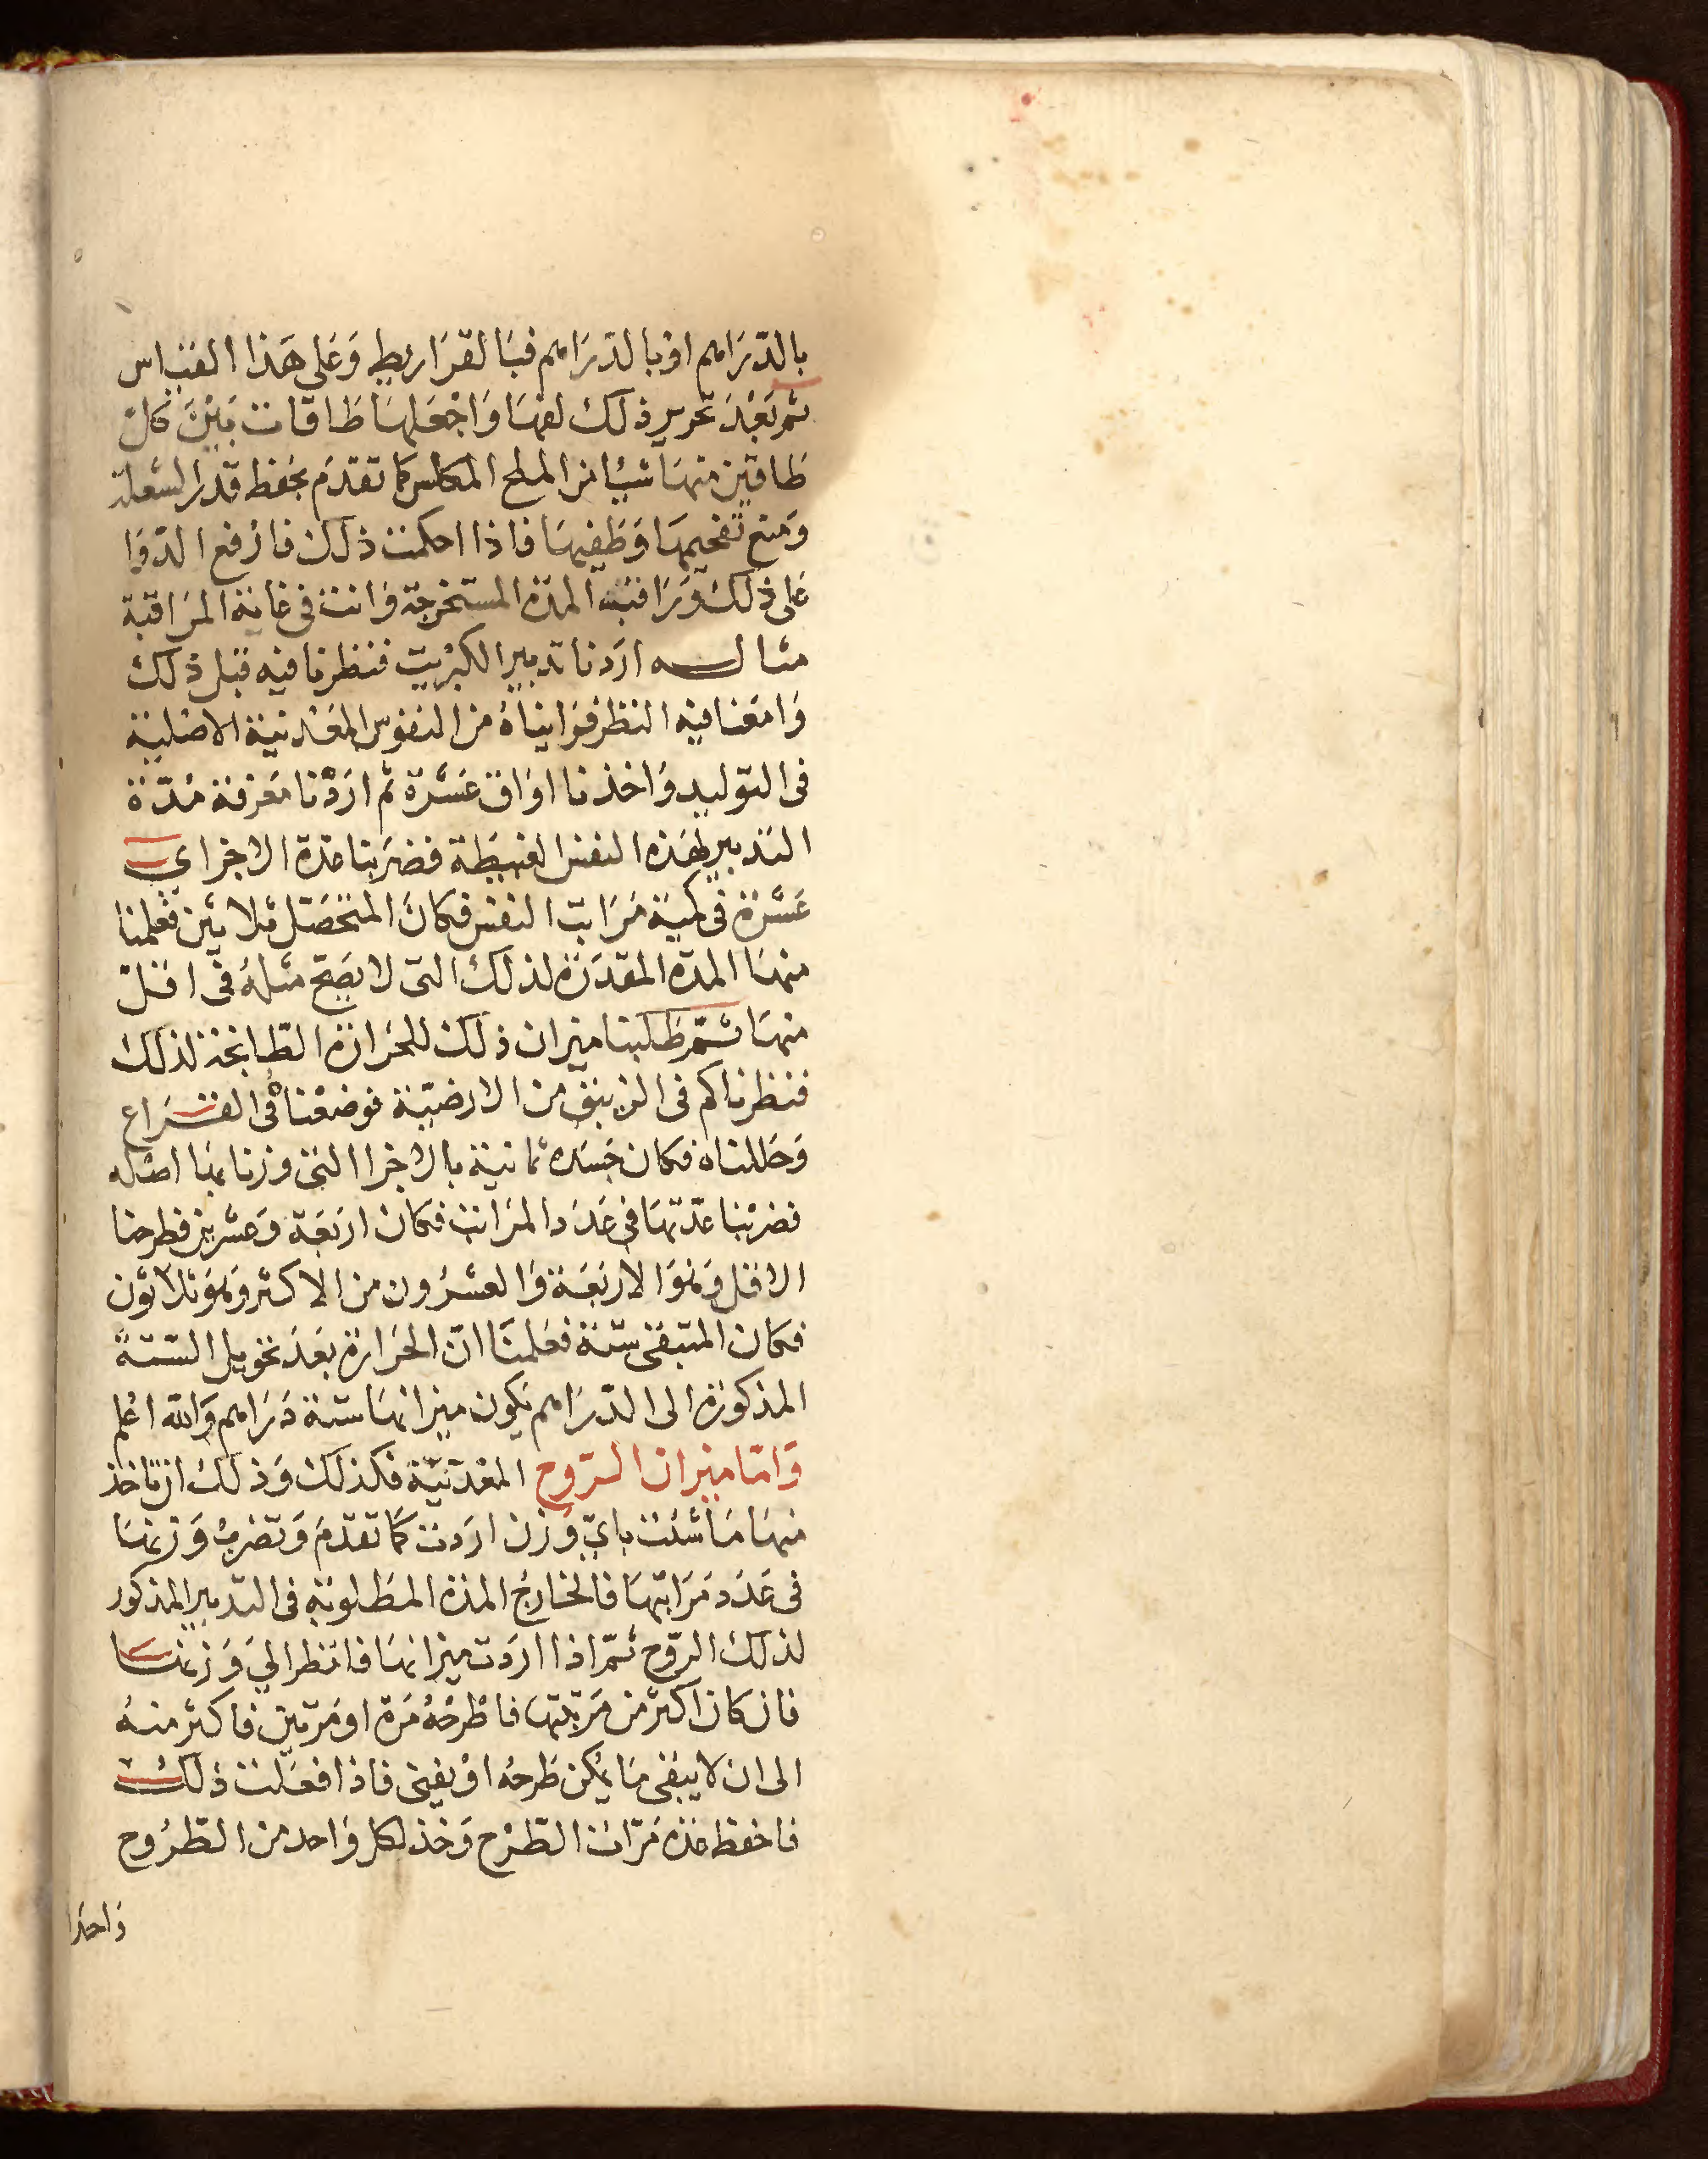 بالدّرَاهم اوْ بالدّرَاهم فبَالقرَاريط وَعَلى هَذا القيَاس
ثم بَعْدَ تحرير ذلكَ لفهَا وَاجْعَلهَا طَاقات بَيْنَ كلّ
طَاقين منهَا شيْأ من الملح المكلس كما تقدّم يحفظ قدرَ الشعلة
وَمنع تفحيمهَا وَطَفيهَا فاذا احكمت ذلك فارْفع الدّوَا
عَلى ذلكَ وَرَاقبْه المدّة المستخرجة وَانت فى غاية المرَاقبة
مثاله ارَدنا تدبير الكبْريت فنظرنا فيه قبل ذلك
وَامعَنا فيه النظر فرَايناهُ من النفوس المعْدنية الاصْلية
فى التوليد وَاخذنا اوَاق عَشْرَة ثم ارَدْنا مَعْرفة مُدّة
التدبير لهَذه النفس الغبيطَة فضرَبنا عدة الاجزاء اى
عَشْرَة فى كمية مَرَاتب النفس فكانَ المتحَصّل ثلاثين فعَلمنا
منهَا المدّة المقدّرَة لذلكَ التى لا يصَحّ مثلهُ فى اقلّ
منهَا ثمّ طَلبنا ميزان ذلك للحرَارَة الطابخة لذلك
فنظرنا كم فى الزيبق من الارضيّة فوضعْناهُ فى القرَاع
وَحَللناه فكان جَسَده ثمانية بالاجزا التى وزنا بهَا اصْله
فضرَبْنا عدّتهَا فى عَدَد المرَاتب فكان ارْبَعَة وَعشرين فطرحنا
الاقل وَهوَ الارْبَعَة وَالعشرُون من الاكثر وَهوَ ثلاثون
فكان المتبقى ستة فعَلمنَا انّ الحَرارَة بَعَد تحويل الستة
المذكورَة الى الدّرَاهم يَكون ميزانهَا ستة دَرَاهم وَالله اعْلم
وَامّا ميزان الرّوح المعْدنيّة فكذلك وَذلكَ ان تاخذ
منهَا مَا شئت بايّ وَزن ارَدت كمَا تقدّمَ وَتضربُ وَزنهَا
فى عَدَد مَرَاتبهَا فالخارجُ المدة المطلوبَة فى التدبير المذكور
لذلك الرّوح ثمّ اذا ارَدت ميزانهَا فانظر الىَ وَزنهَا
فان كان اكثرَ من مَرتبتهَا فاطْرحْهُ مَرة او مَرتين فاكثر منهُ
الى ان لا يبقى مَا يُمكن طَرحُه اوْ يفنى فاذا فعَلت ذلك
فاحفظ عدّة مَرّات الطّرْح وَخذ لكل وَاحد من الطّرُوح
وَاحدا